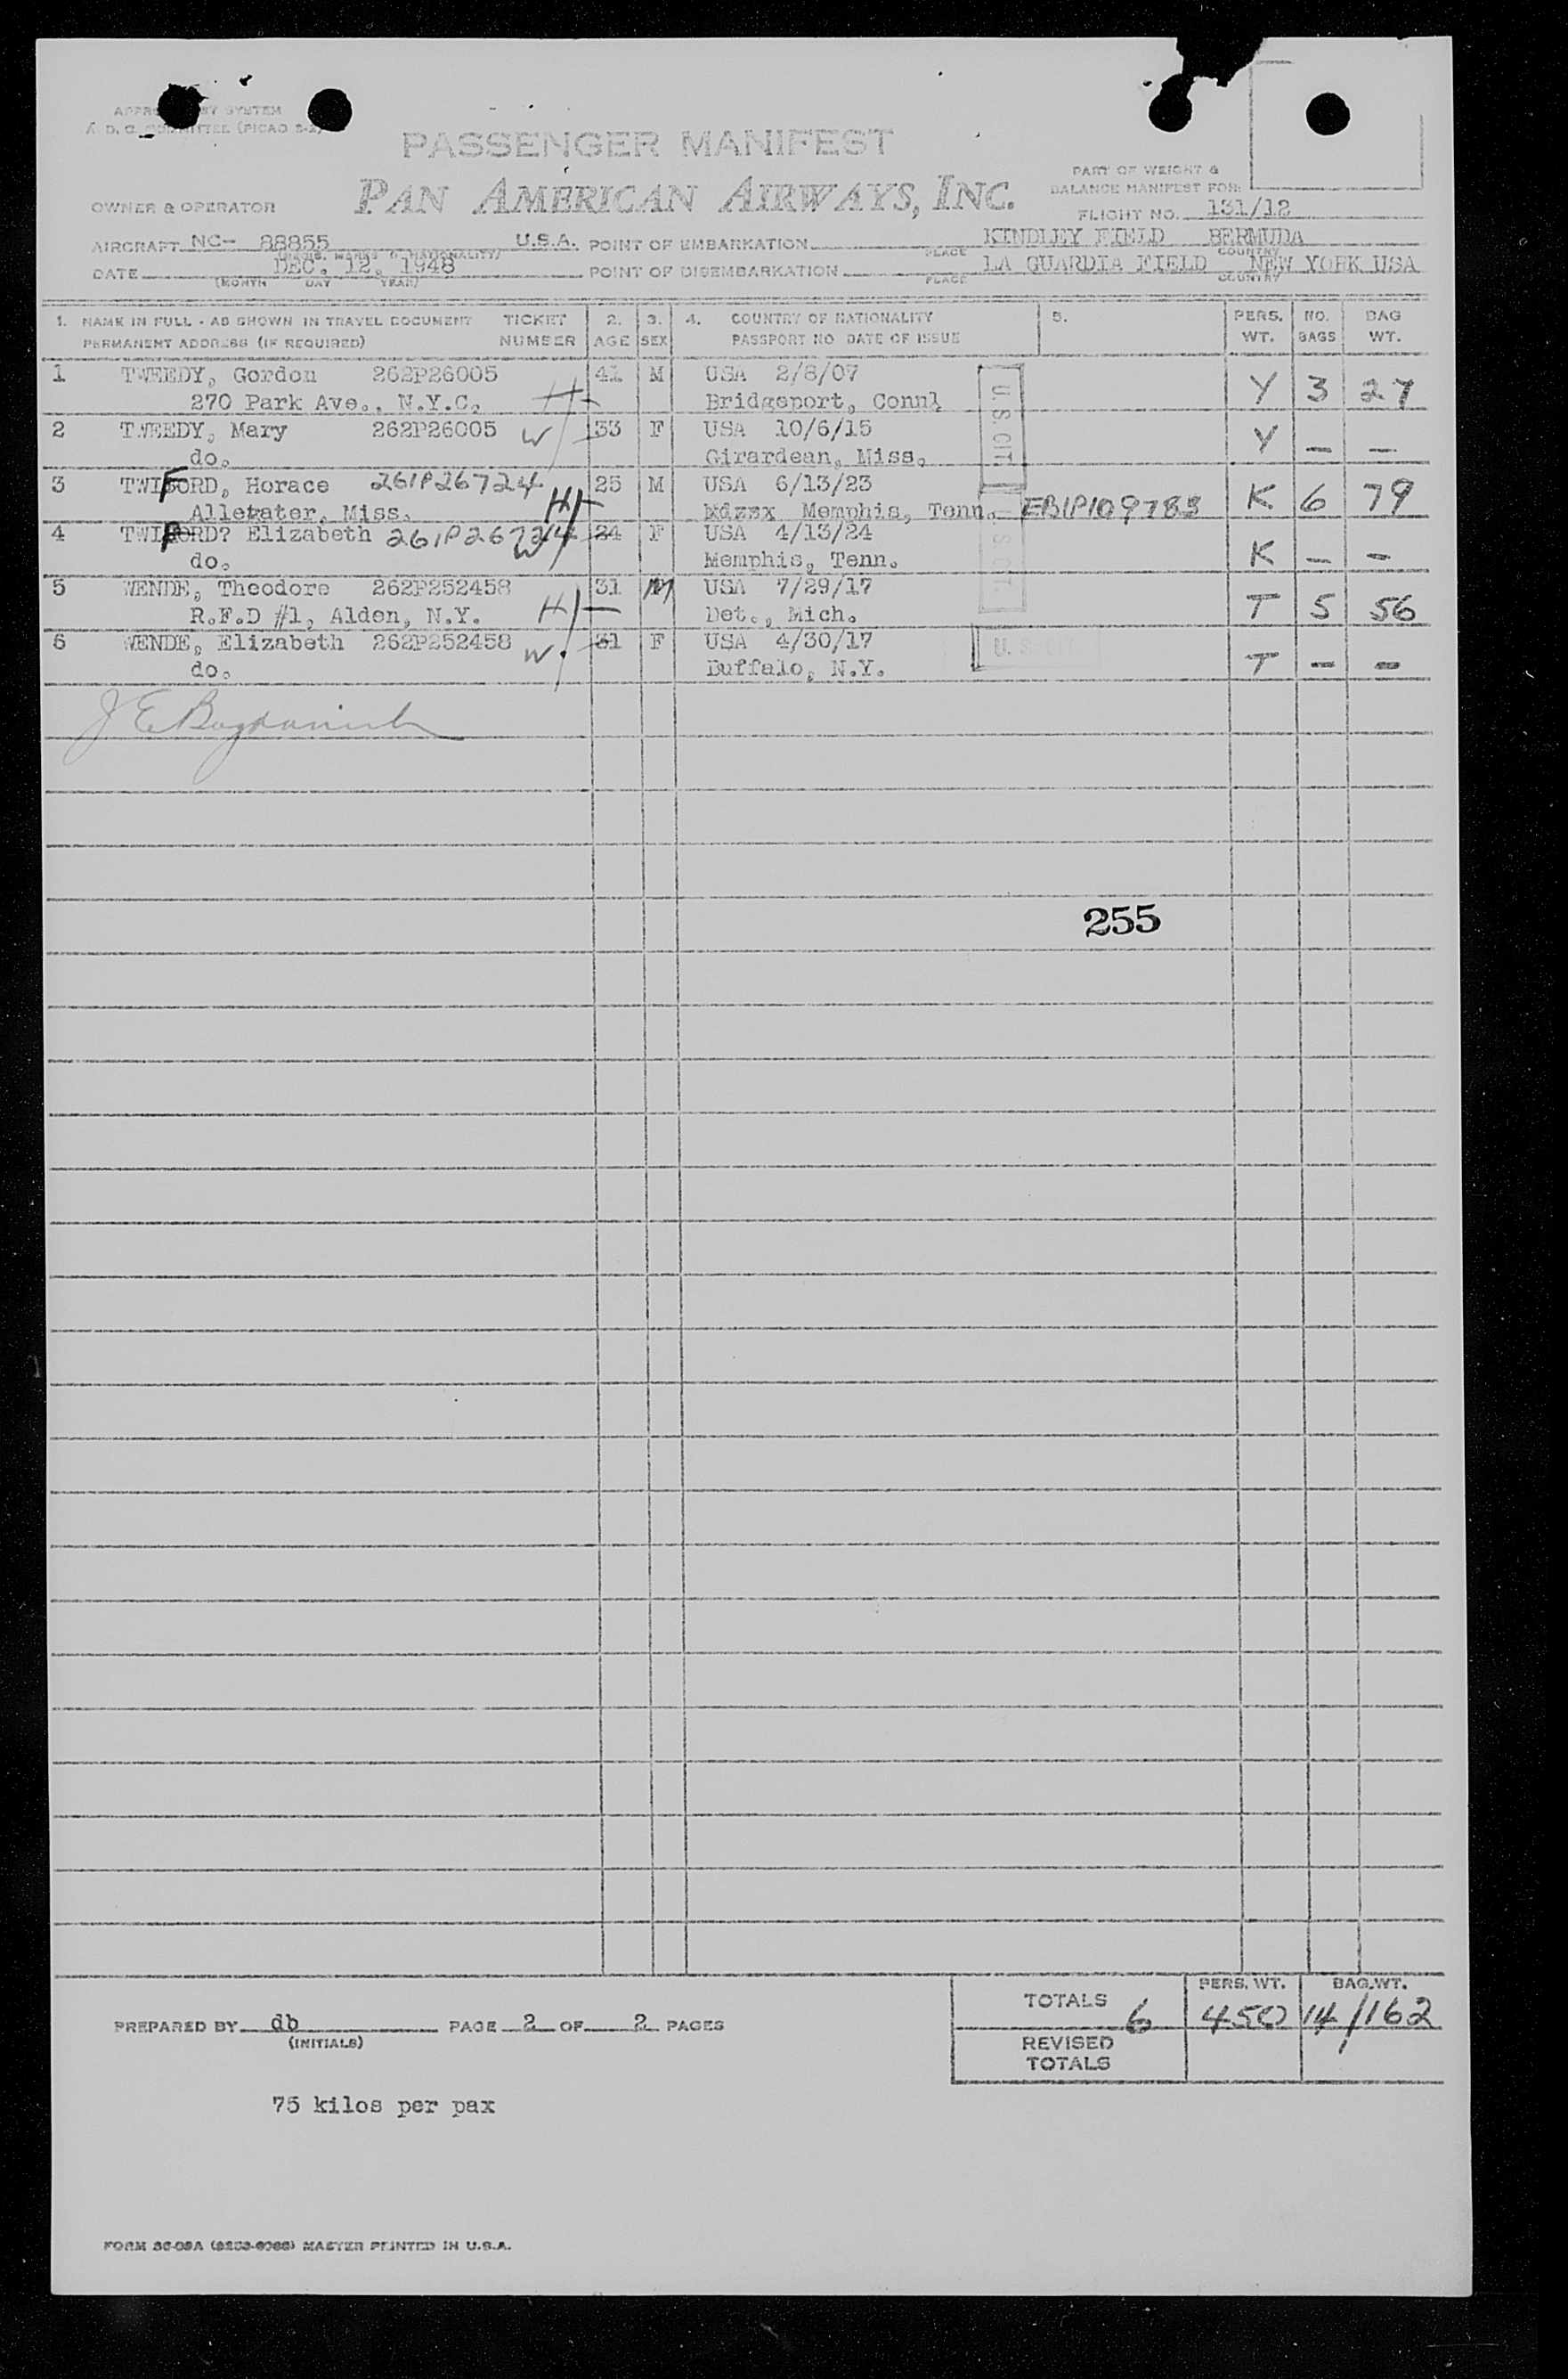 PASSENGER MANIFEST
PAN AMERICAN AIRWAYS, INC.
PART OF WEIGHT &
BALANCE MANIFEST FOR:
OWNER & OPERATOR
FLIGHT NO. 131/12
AIRCRAFT NC- 88855 U.S.A. POINT OF EMBARKATION KINDLEY FIELD BERMUDA
PLACE COUNTRY
DATE DEC. 12, 1948 POINT OF DISEMBARKATION LA GUARDIA FIELD NEW YORK USA
(MONTH DAY YEAR) PLACE COUNTRY
1. NAME IN FULL - AS SHOWN IN TRAVEL DOCUMENT TICKET 2. 3. 4. COUNTRY OF NATIONALITY 5. PERS. NO. BAG
PERMANENT ADDRESS (IF REQUIRED) NUMBER AGE SEX PASSPORT NO DATE OF ISSUE WT. BAGS WT.
1 TWEEDY, Gordon 262P26005 41 M USA 2/8/07 Y 3 27
270 Park Ave., N.Y.C. H Bridgeport, Conn
U.S. CIT.
2 TWEEDY, Mary 262P26005 W 33 F USA 10/6/15 Y — —
do. Girardean, Miss.
3 TWIFORD, Horace 261P26724 25 M USA 6/13/23 K 6 79
Allewater, Miss. H Memphis, Tenn. EBIP109783
4 TWIFORD? Elizabeth 261P26724 W 24 F USA 4/13/24 K — —
do. Memphis, Tenn.
5 WENDE, Theodore 262P252458 31 M USA 7/29/17 T 5 56
R.F.D #1, Alden, N.Y. H Det., Mich.
6 WENDE, Elizabeth 262P252458 W. 31 F USA 4/30/17 U.S. CIT. T — —
do. Buffalo, N.Y.
255
TOTALS 6 PERS. WT. 450 BAG.WT. 14/162
PREPARED BY db PAGE 2 OF 2 PAGES
(INITIALS)
REVISED
TOTALS
75 kilos per pax
MASTER PRINTED IN U.S.A.